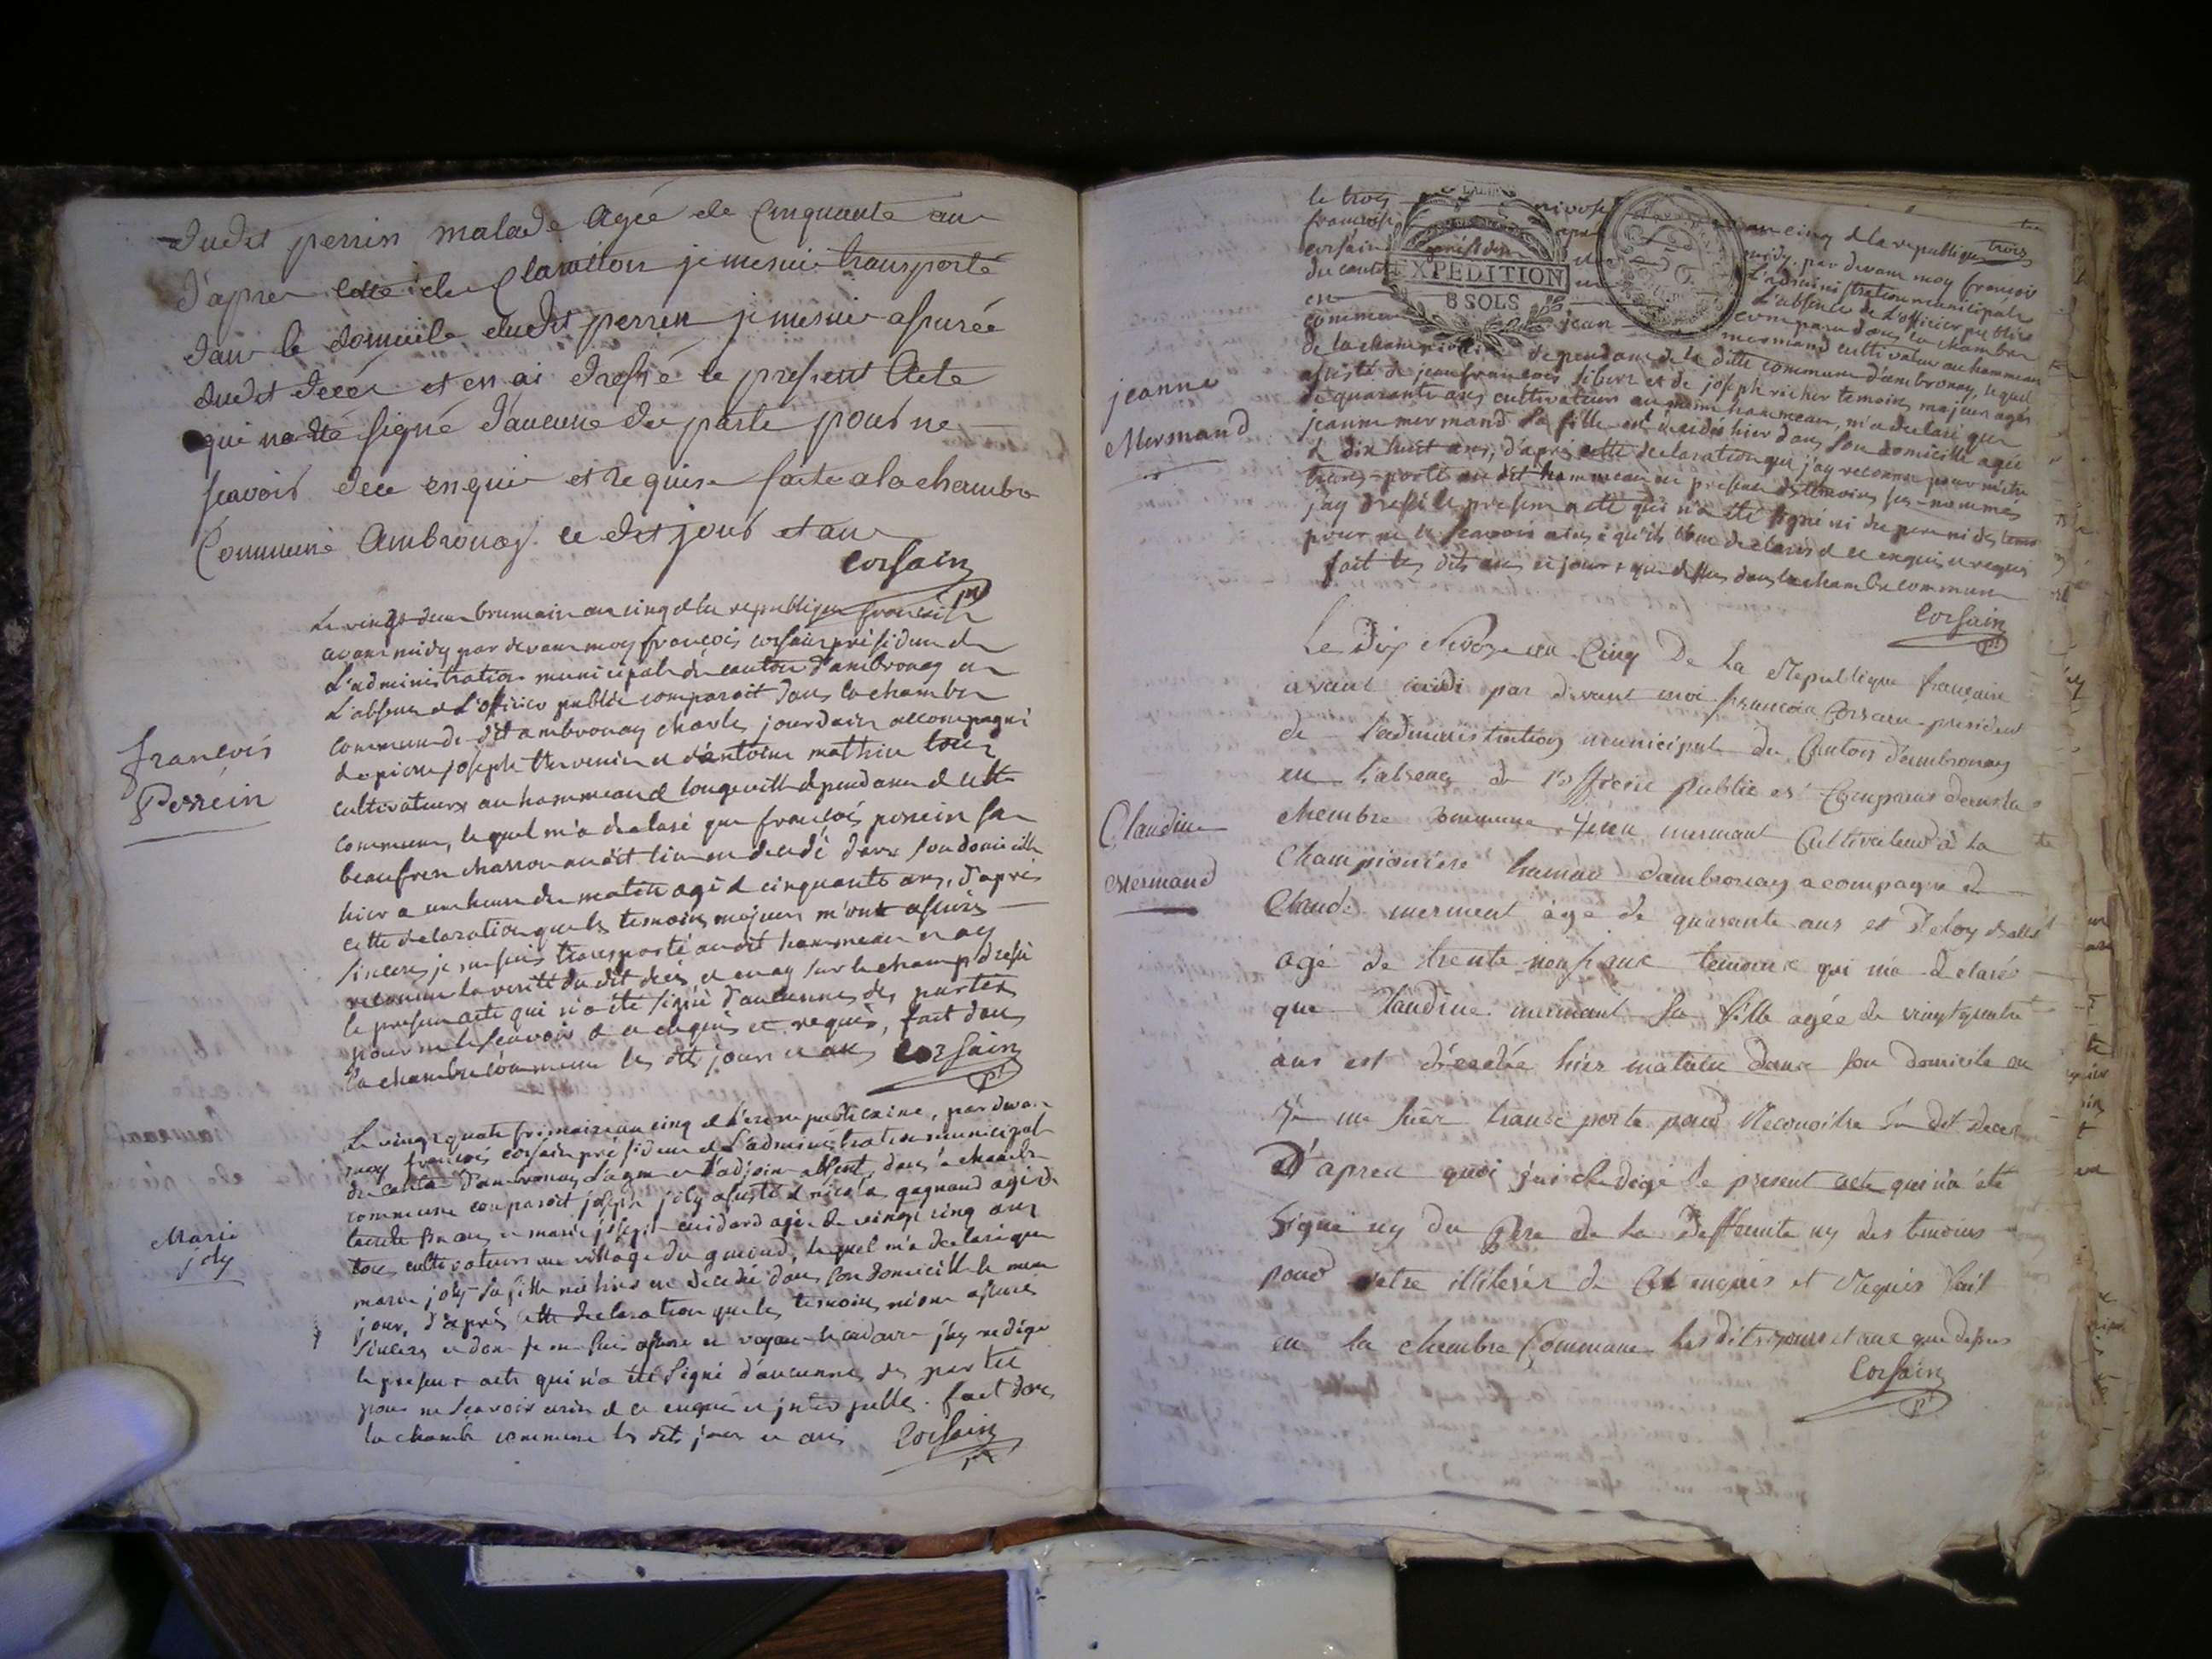 dudit perrin malade Agée de Cinquante an
d'apres cette de Claration je me suis transporté
dans le domicile dudit perrin je me suis assurée
dudit decés et en ai dressé le present Acte
qui na été signé d'aucune des partе pour ne
scavoir de ce enquis et Requise faite a la chambre
Commune Ambronay ce dit jour et an
Corsain
pt
françois
Perrein
Le vingt deux brumaire an cinq de la republique francaise
avant midy par devant moy françois corsain président de
L'administration municipale du canton d'ambronay en
L'absence de L'officier public comparoit dans la chambre
commune du dit ambronay charle jourdain accompagné
de pierre joseph thevenin et d'antoine mathieu tous
cultivateurs au hammeau de longeville dependant de cette
commune, lequel m'a declaré que françois perrein son
beaufrere charron au dit lieu est decedé dans son domicille
hier a une heure du matin agé de cinquante ans, d'après
cette declaration que les temoins majeurs m'ont assurés
sincere, je me suis transporté au dit hammeau et ay
reconnu la verité du dit decés et en ay sur le champ dressé
le present acte qui n'a été signé d'aucunnes des parties
pour ne le scavoir de ce enquis et requis, fait dans
la chambre commune les dits jours et an Corsain
pt
Marie
joly
Le vingt quatre frimaire an cinq de l'ere republicaine, par devant
moy françois corsain président de L'administration municipale
du canton d'ambronay L'agent et l'adjoint absent, dans la chambre
commune comparoit joseph joly assisté de nicolas gagnaud agé de
trente ans et marie joseph cuidard agé de vingt cinq ans
tous cultivateurs au village du gueoud, lequel m'a declaré que
marie joly sa fille née hier est decedée dans son domicille le meme
jour, d'après cette declaration que les temoins m'ont assuré
sincere et dont je me suis assuré en voyant le cadavre j'ay redigé
le present acte qui n'a été signé d'aucunnes des parties
pour ne scavoir ecrire de ce enquis et interpellé. fait dans
la chambre commune les dits jour et an Corsain
pt
jeanne
Mermand
le trois nivose an cinq de la republique
francaise apres midy. par devant moy françois
corsain président de L'administration municipale
du canton L'absence de L'officier publice
en comparu dans la chambre
commune jean mermand cultivateur au hammeau
de la championiere dependant de la ditte commune d'ambronay, lequel
assisté de jean françois sibert et de joseph richer temoins majeurs agés
de quarante ans cultivateurs au meme hammeau, m'a declaré que
jeanne mermand sa fille est decedée hier dans son domicille agée
de dix huit ans, d'après cette declaration que j'ay reconnu pour m'etre
transporté au dit hammeau en presence des temoins sus-nommés
j'ay dressé le present acte qui n'a été signé ni du pere ni des temoins
pour ne le scavoir ainsi qu'ils l'ont declarés de ce enquis et requis
fait les dits an et jour que dessus dans la chambre commune
Corsain
pt
EXPEDITION
8 SOLS
Claudine
Mermand
Le Dix Nivoze an Cinq De la Republique française
avant midi par devant moi françois Corsain president
de l'administration municipale du Canton d'ambronay
en l'absence de l'officie Public est Comparus dans la
chembre commune Jean mermant Cultivateur à la
Championiére hamau d'ambronay acompagné de
Claude merment agé de quarante ans et
agé de trente neuf ans temoins qui m'a déclaré
que Claudine mermant sa fille agée de vingt quatre
ans est décedée hier matain dans son domicile ou
je me suis transporté pour Reconoitre Le dit deces
D'après quoi j'ai Redigé le present acte qui n'a été
Signé ny du Pere de la deffeunte ny des temoins
pour etre illiterés de Ce enquis et Requis fait
en la chembre Commune les dits jours et ans que dessus
Corsain
pt